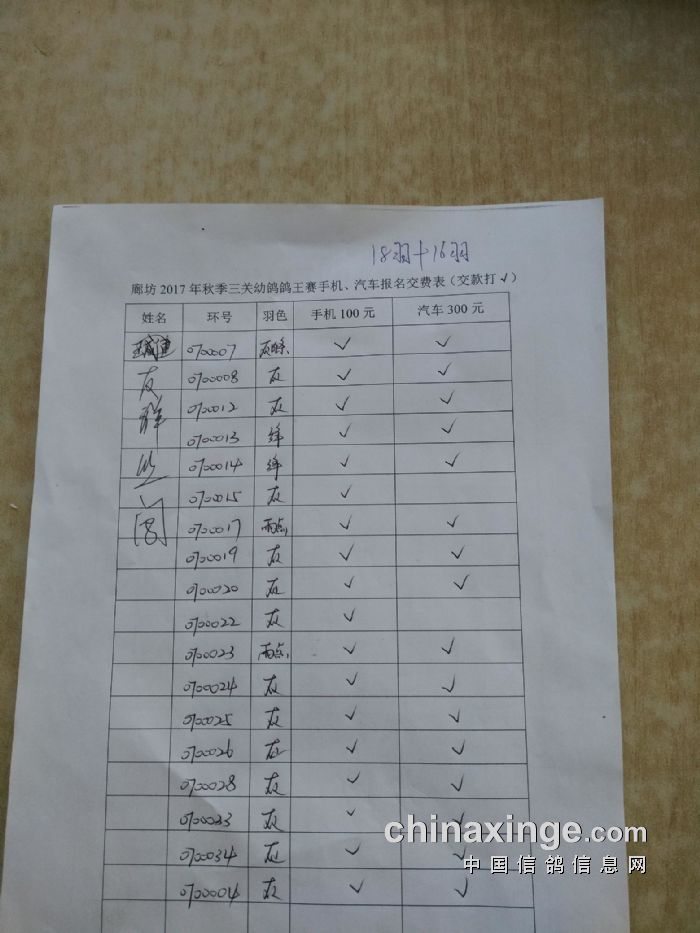 18羽+16羽
廊坊2017年秋季三关幼鸽鸽王赛手机、汽车报名交费表(交款打√)
姓名 环号 羽色 手机100元 汽车300元
0700007 √ √
友 0700008 灰 √ √
0700012 灰 √ √
0700013 绛 √ √
0700014 绛 √ √
0700015 灰 √
阁 0700017 雨点 √ √
0700019 灰 √ √
0700020 灰 √ √
0700022 灰 √
0700023 雨点 √ √
0700024 灰 √ √
0700025 灰 √ √
0700026 灰 √ √
0700028 灰 √ √
0700033 灰 √ √
0700034 灰 √ √
0700004 灰 √ √
chinaxinge.com
中国信鸽信息网